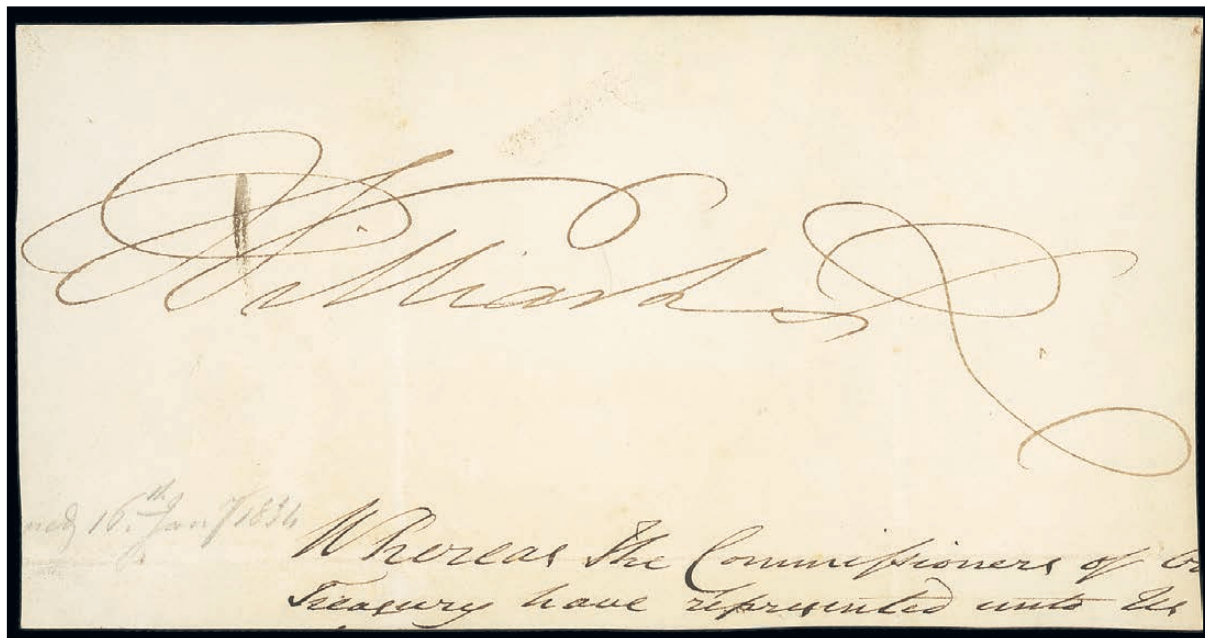 William R.
16th Jany 1834
Whereas The Commissioners of
Treasury have represented unto Us